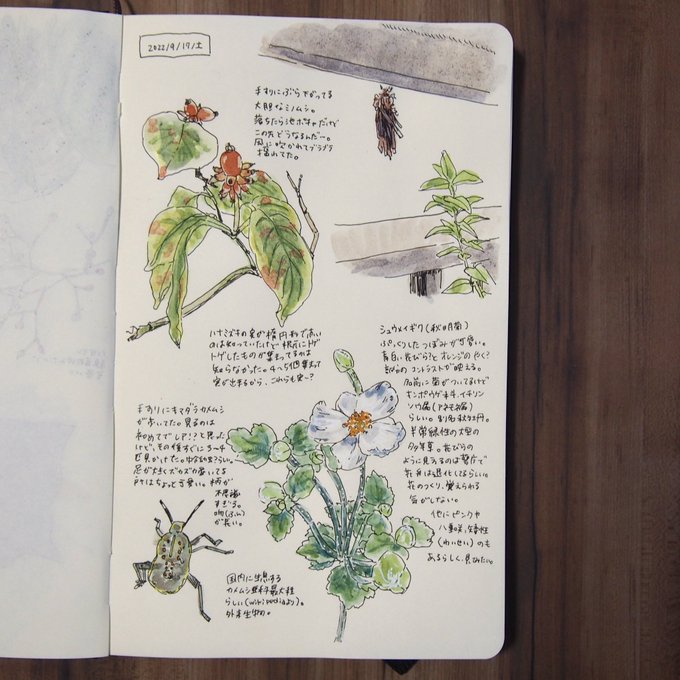 2022/9/17/土
手すりにぶら下がってる
大胆なミノムシ。
落ちたら池ポチャだけど
この先どうなるんだー。
風に吹かれてブラブラ
揺れてた。
ハナミズキの実が楕円形で赤い
のは知っていたけど根元にトゲ
トゲしたものが集まってるのは
知らなかった。4つ5個集まって
実が出来るから、これらも実ー?
シュウメイギク(秋明菊)
ぷっくりしたつぼみが可愛い。
青白い花びらと オレジのやく?
部分の コントラストが映える。
名前に菊がついてるけど
キンポウゲ科、イチリン
ソウ属(アネモネ属)
らしい。別名秋牡丹。
半常緑性の大型の
多年草。花びらの
ように見えるのは萼片で
花弁は退化してるらしい。
花のつくり、覚えられる
気がしない。
他にピンクや
八重咲、矮性
(わいせい)のも
あるらしく、見てみたい。
手すりにキマダラカメムシ
が歩いてた。見るのは
初めてでレア!?と思った
けど、その後すぐに3〜4
匹見かけた。幼虫らしい。
足が大きくズボズボ歩いてる
所はちょっと可愛い。柄が
不思議
すぎる。
吻(ふん)
が長い。
国内に生息する
カメムシ亜科最大種
らしい(wikipediaより)。
外来生物。